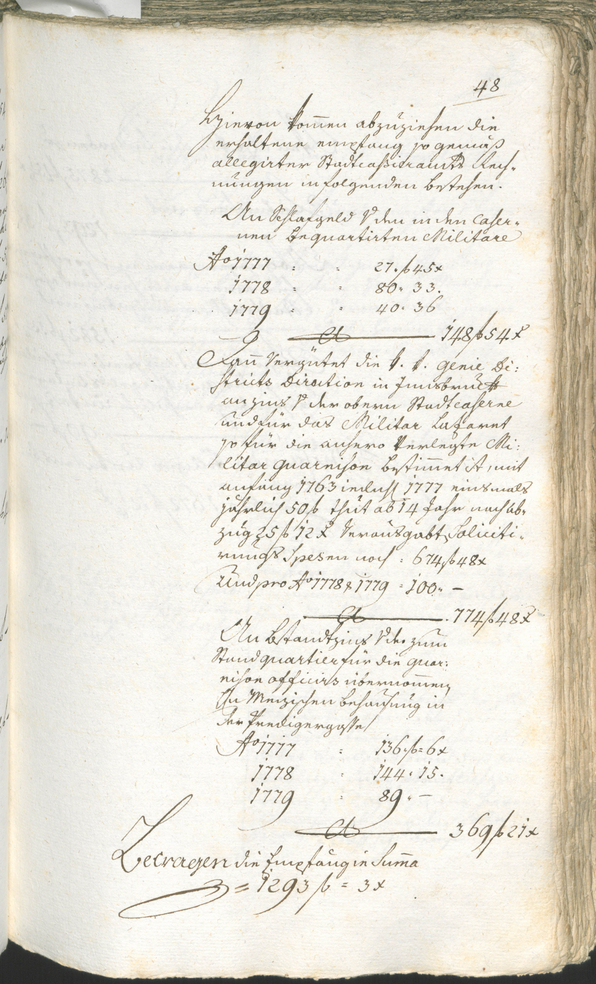 48
Hievon kommen abzuziehen die
erhaltene empfang so gemäß
allegirter Stadtcassieramts Rech-
nungen in folgenden bestehen.
An Schlafgeld von den in den Caser-
nen bequartirten Militare
Ao 1777 " " 27. f 45 x
1778 " 80. 33.
1779 " 40. 36
148 f 54 x
Dann vergütet die k. k. Genie Di:
stricts Direction in Innsbruck
an zins von der obern Stadtcaserne
und für das Militar Lazaret
so für die anhero verlegte Mi:
litar guarnison bestimmet ist mit
anfang 1763 1777 einsmals
jährlich 50 f thut ab 14 Jahr nach ab-
zug 25 f 12 x verausgabt Soliciti-
rungs Spesen noch : 674 f 48 x
Und pro Ao 1778 & 1779 " 100. –
774 f 48 x
An Bstandtzins von der zum
Standquartier für die guar:
nison officirs übernommen
Menzischen behausung in
der Predigergasse
Ao 1777 " 136. f 6 x
1778 " 144. 15.
1779 " 89. –
369 f 21 x
Betragen die Empfäng in Summa
= 1293 f = 3 x